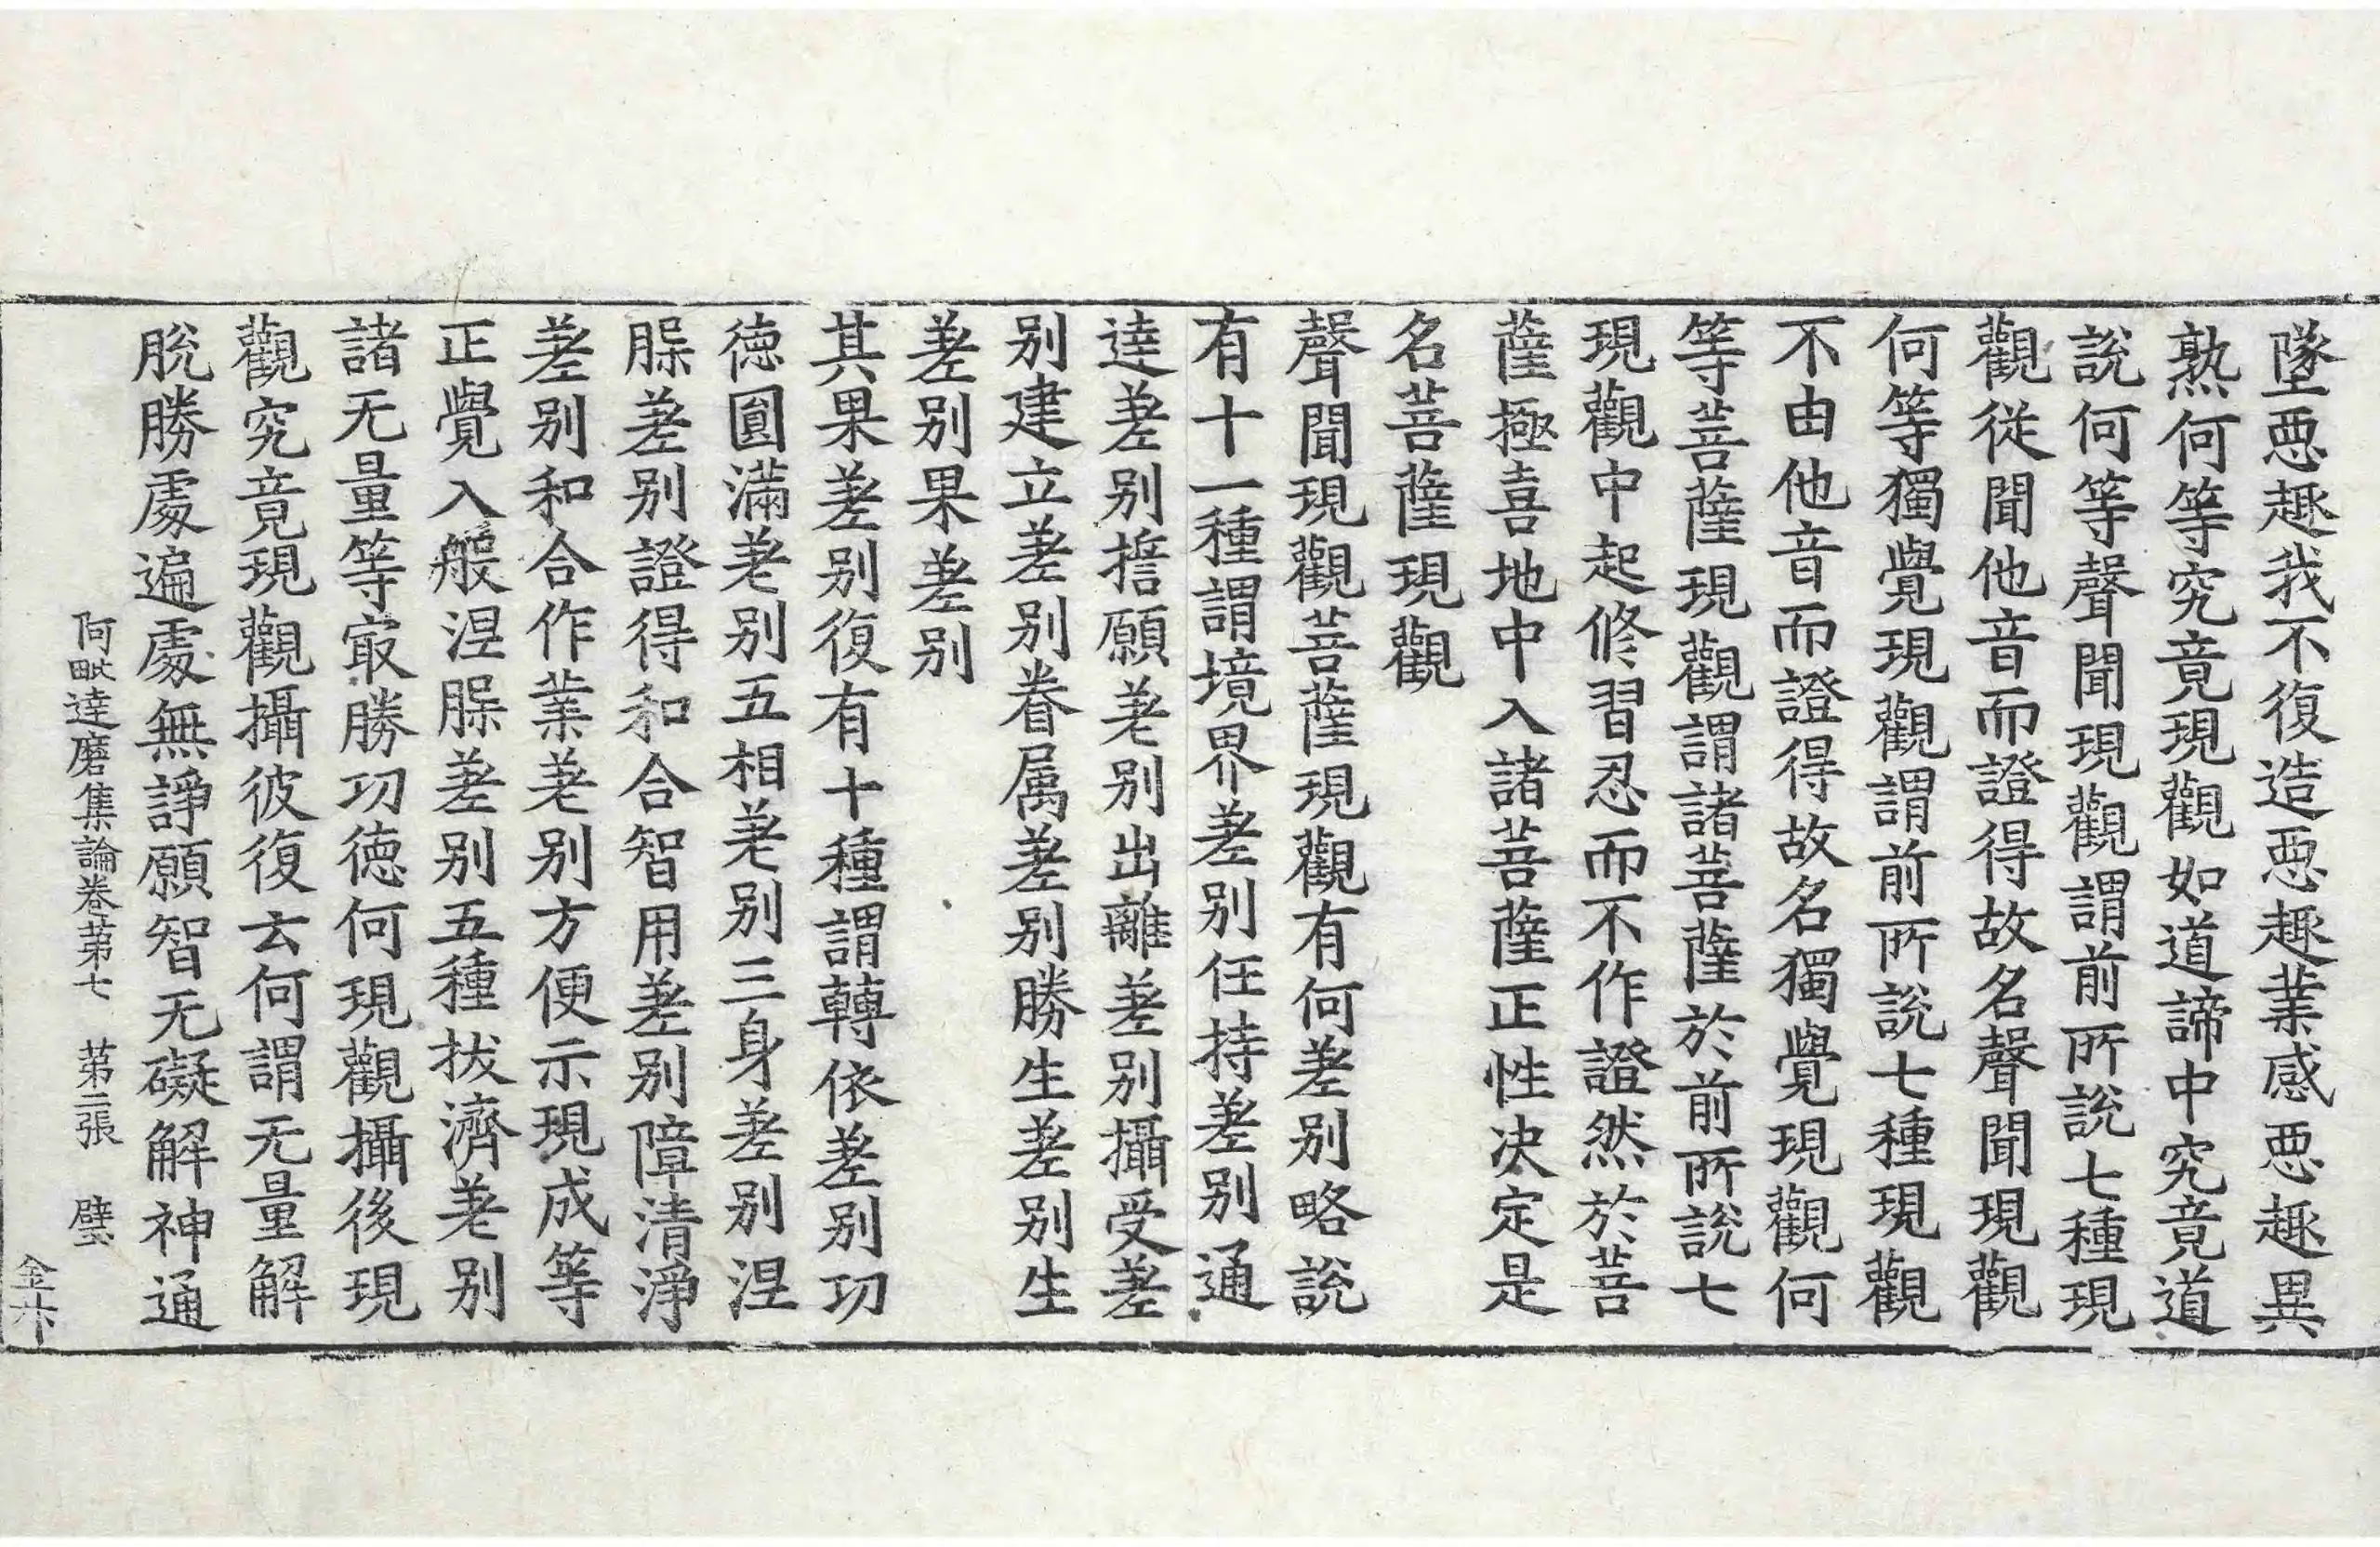 墜惡趣我不復造惡趣業感惡趣異
熟何等究竟現觀如道諦中究竟道
說何等聲聞現觀謂前所說七種現
觀從聞他音而證得故名聲聞現觀
何等獨覺現觀謂前所說七種現觀
不由他音而證得故名獨覺現觀何
等菩薩現觀謂諸菩薩於前所說七
現觀中起修習忍而不作證然於菩
薩極喜地中入諸菩薩正性决定是
名菩薩現觀
聲聞現觀菩薩現觀有何差别略說
有十一種謂境界差别任持差别通
達差别誓願差别出離差别攝受差
别建立差别眷属差别勝生差别生
差别果差别
其果差别復有十種謂轉依差别功
德圓滿差别五相差别三身差别涅
槃差别證得和合智用差别障清淨
差别和合作業差别方便示現成等
正覺入般涅槃差别五種拔濟差别
諸无量等㝡勝功德何現觀攝後現
觀究竟現觀攝彼復云何謂无量解
脫勝處遍處無諍願智无礙解神通
阿毗達磨集論卷第七 第二張 璧
金升